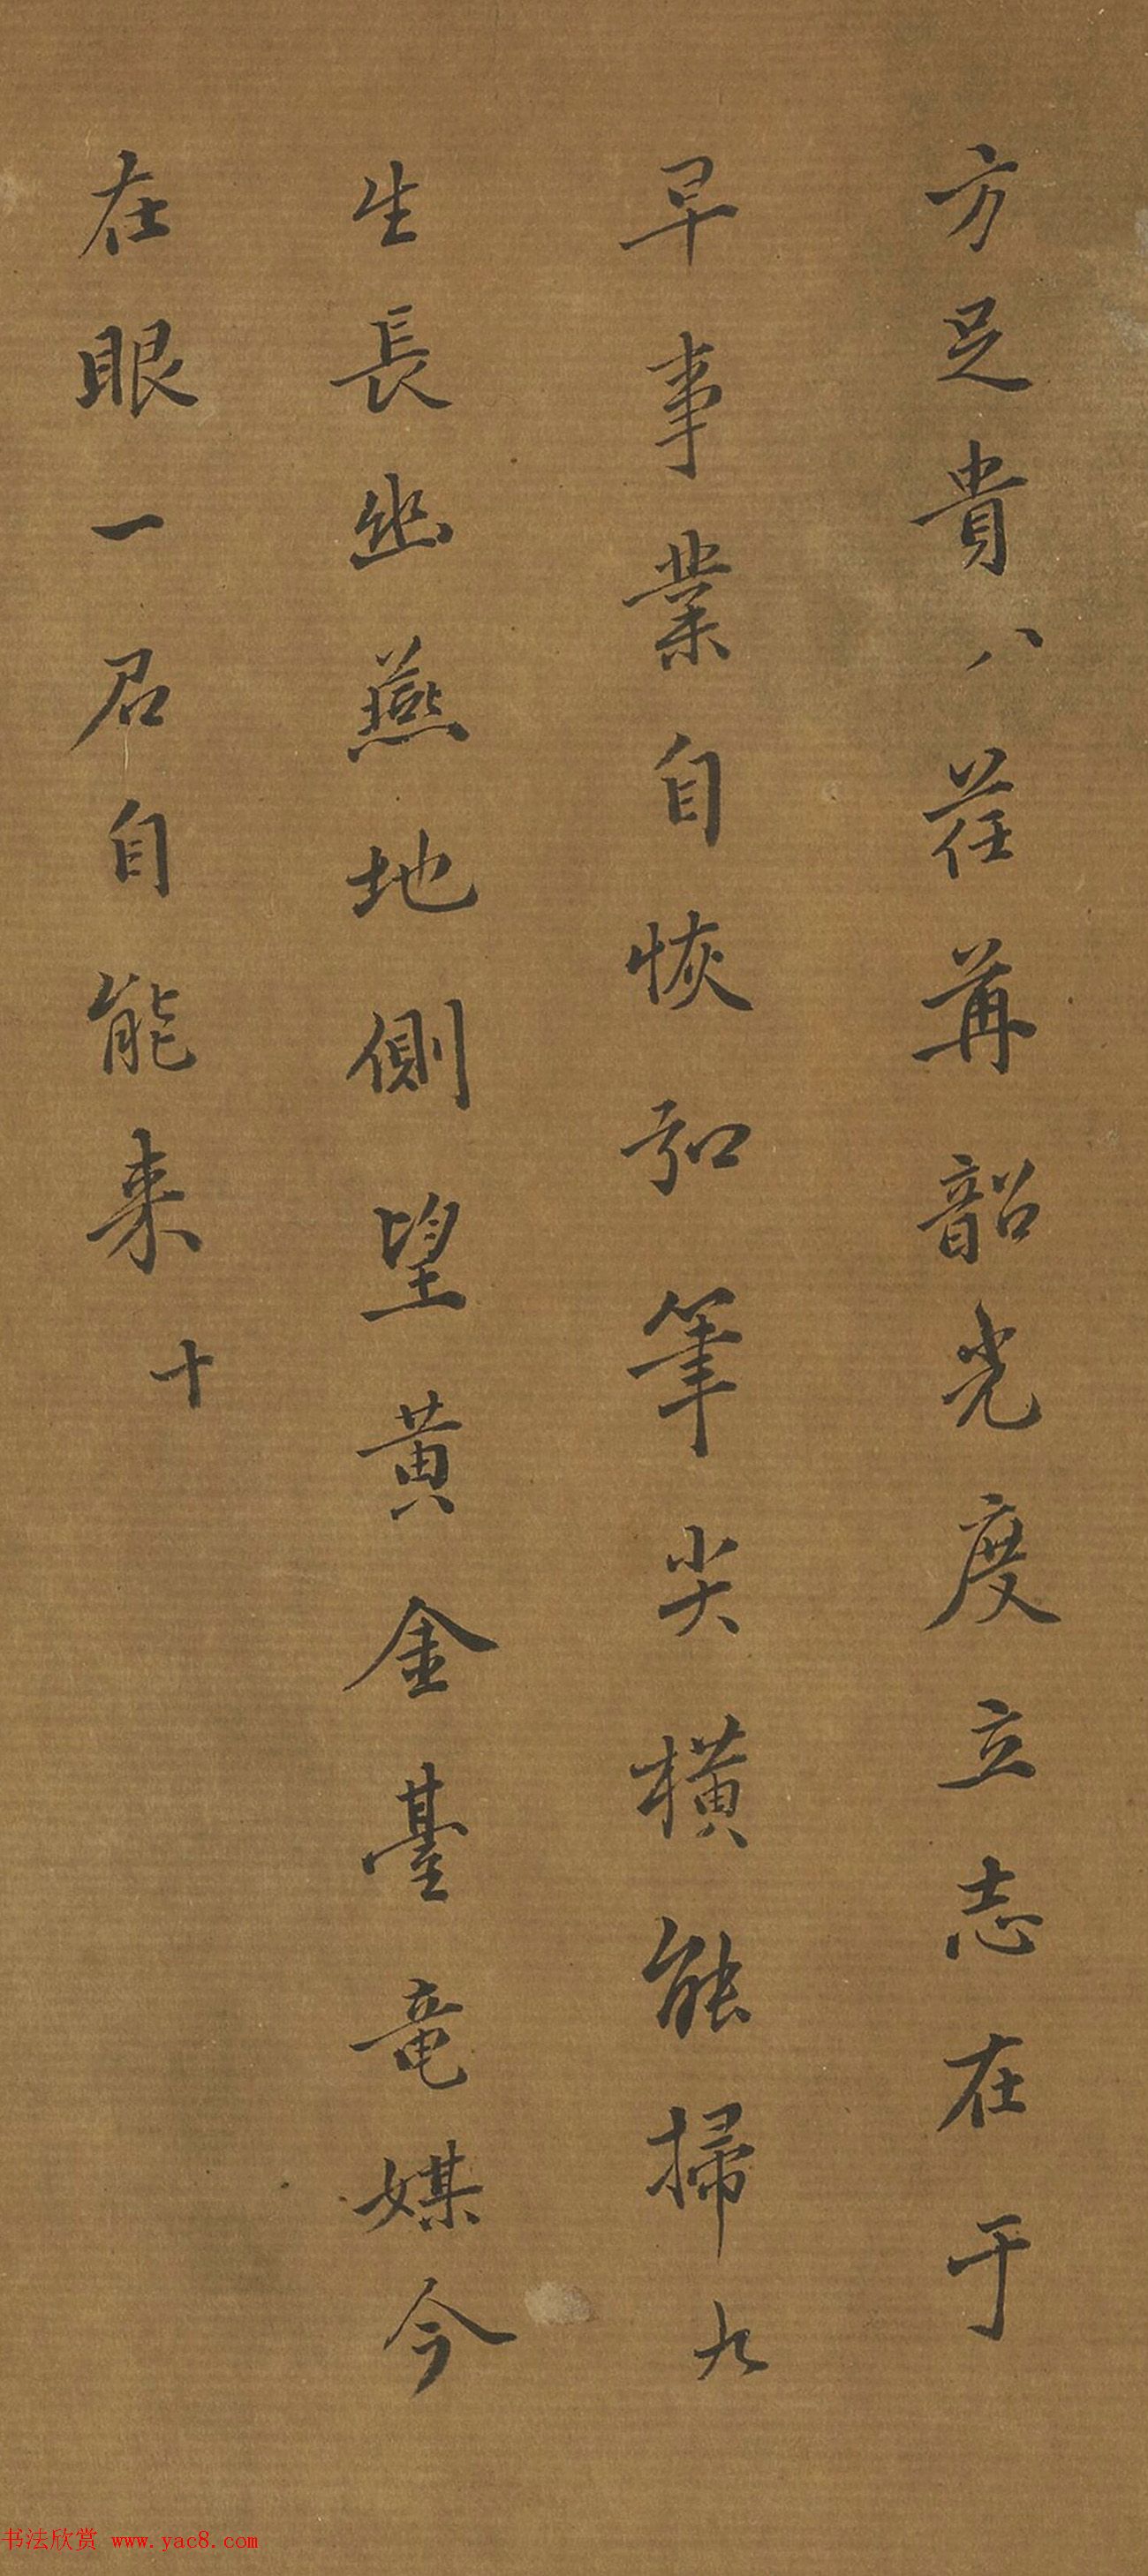 方足貴八荏苒韶光度立志在于
早事業自恢弘筆尖橫能掃九
生長幽燕地側望黃金臺竜媒今
在眼一君自能来十
书法欣赏 www.yac8.com